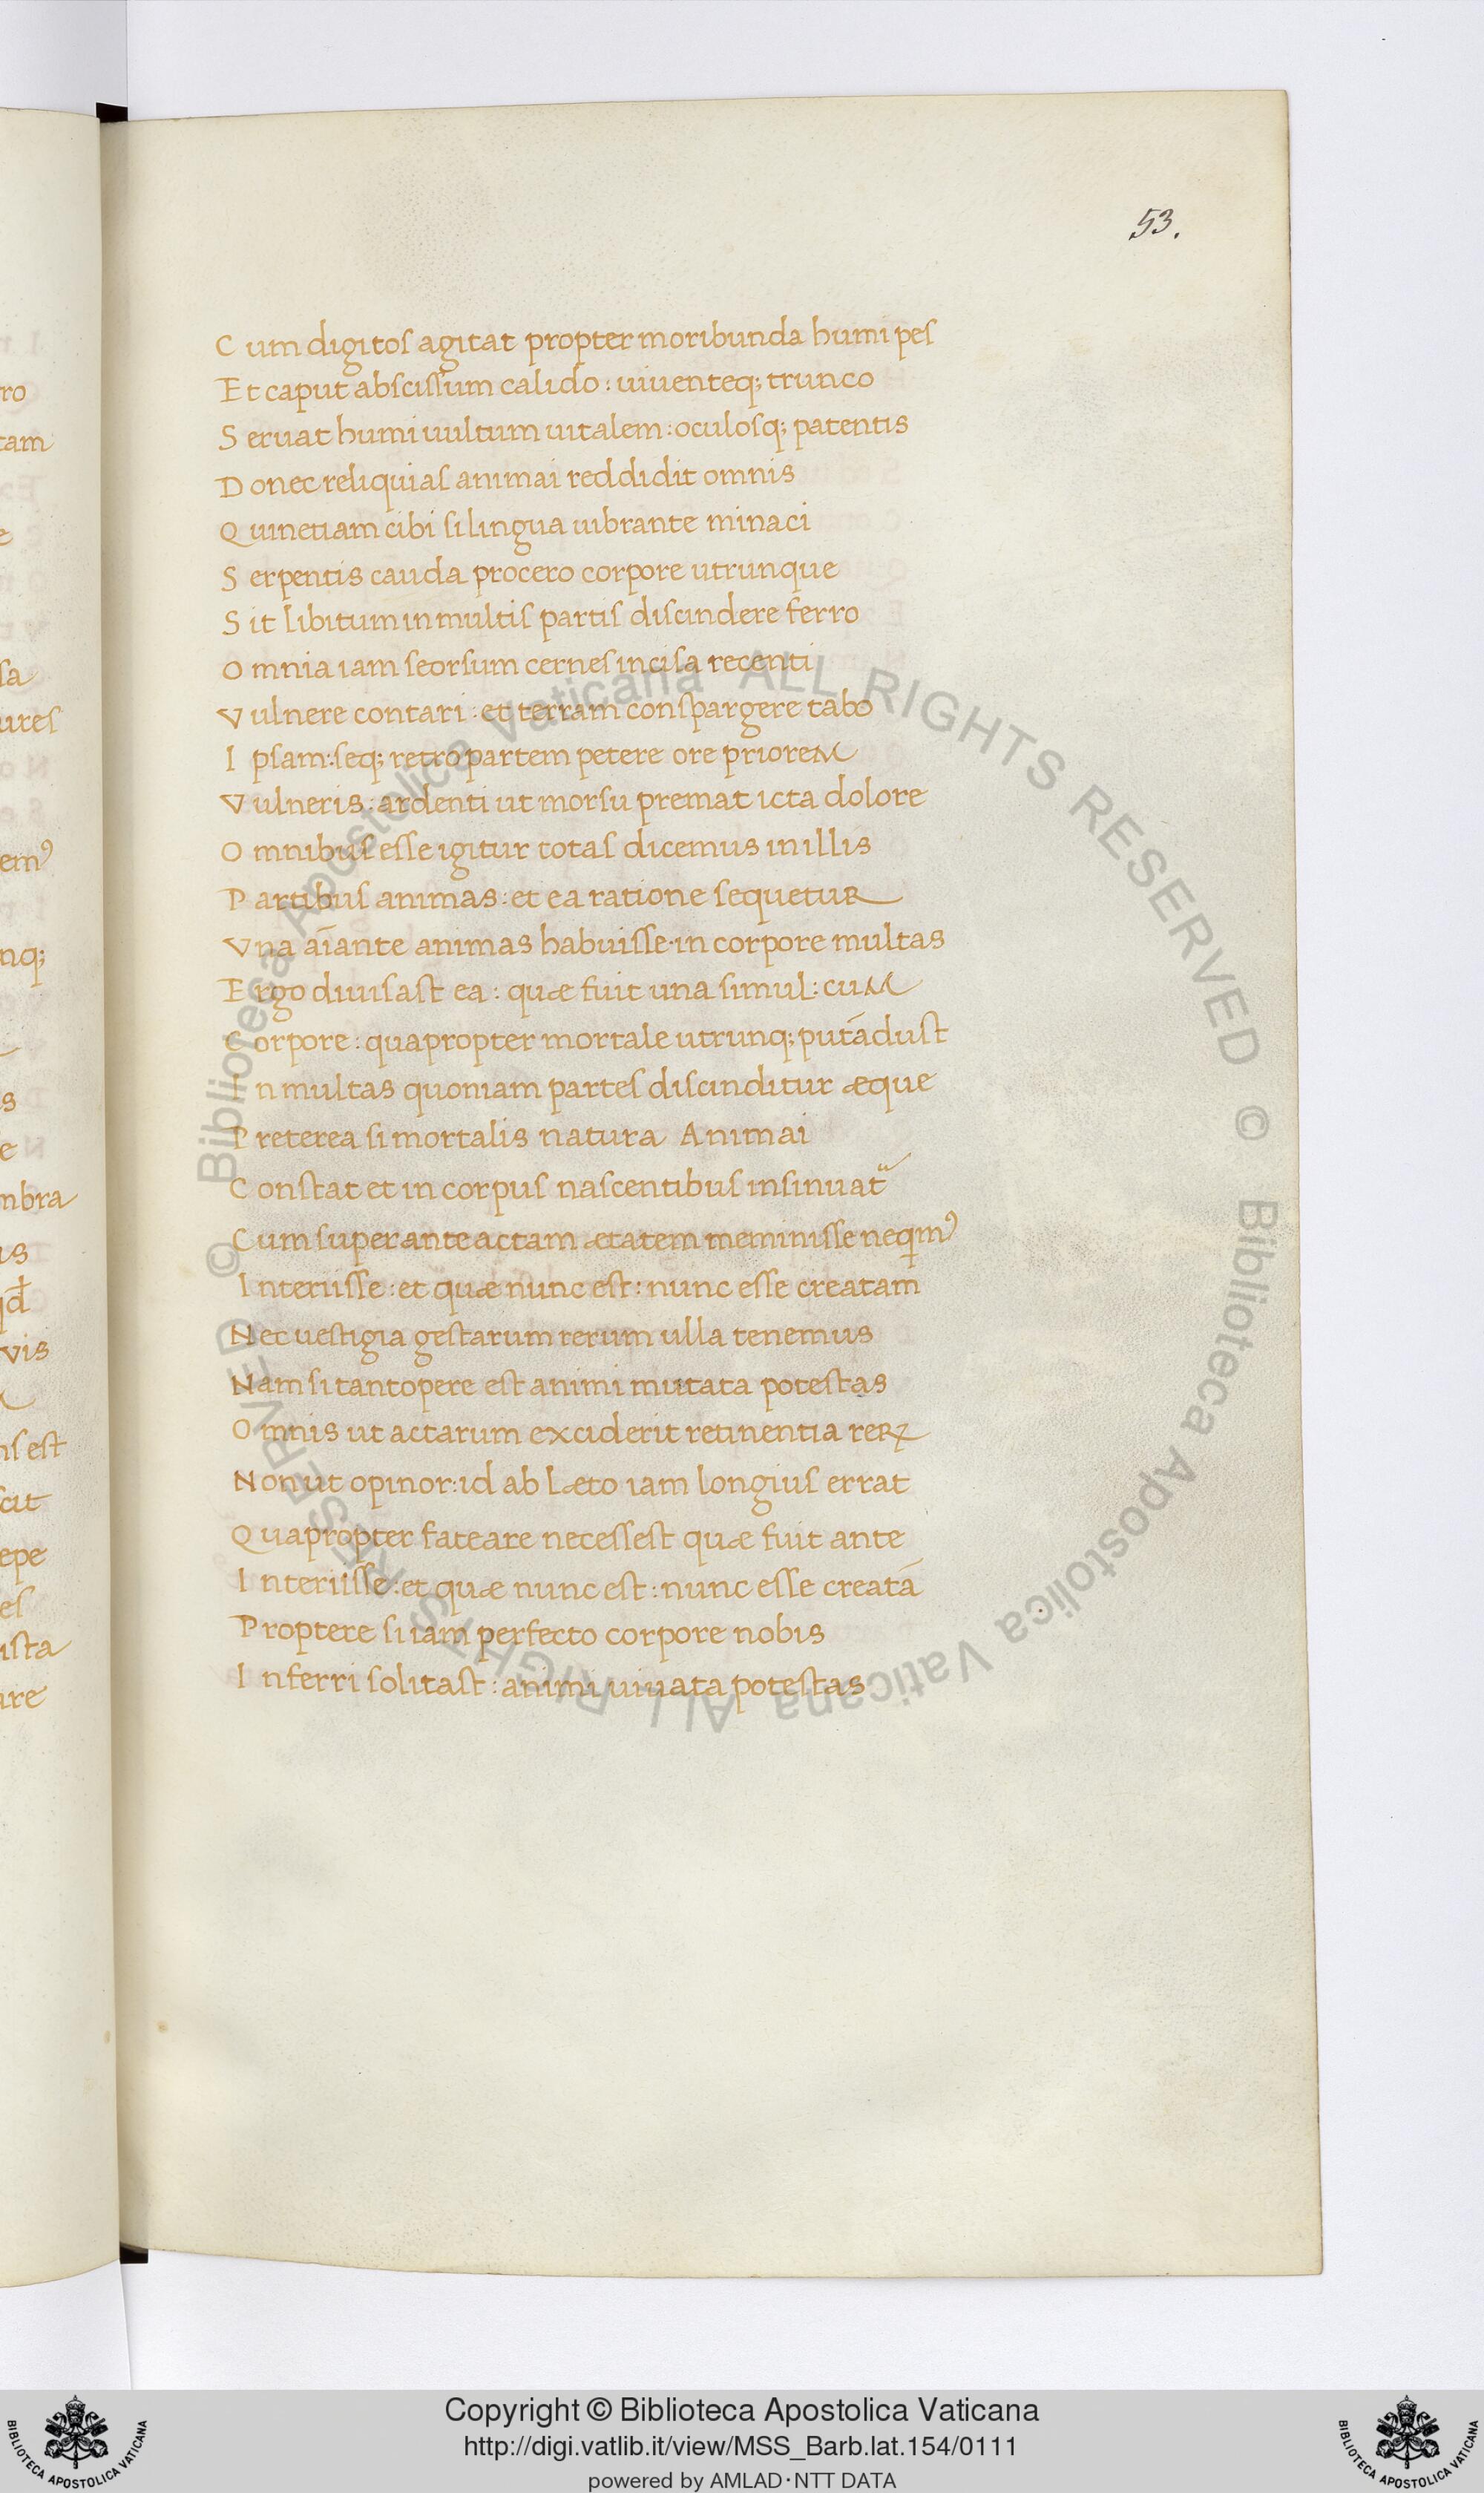 53.
Cum digitos agitat propter moribunda humi pes
Et caput abscissum calido: uiuenteq; trunco
Seruat humi uultum uitalem: oculosq; patentis
Donec reliquias animai reddidit omnis
Quinetiam cibi si lingua uibrante minaci
Serpentis cauda procero corpore utrunque
Sit libitum in multis partis discindere ferro
Omnia iam seorsum cernes incisa recenti
Vulnere contari: et terram conspargere tabo
Ipsam: seq; retro partem petere ore priorem
Vulneris: ardenti ut morsu premat icta dolore
Omnibus esse igitur totas dicemus in illis
Partibus animas: et ea ratione sequetur
Vna aīante animas habuisse in corpore multas
Ergo diuisast ea: quæ fuit una simul: cum
Corpore: quapropter mortale utrunq; putādust
In multas quoniam partes discinditur æque
Preterea si mortalis natura Animai
Constat et in corpus nascentibus insinuatᷣ
Cum super ante actam ætatem meminisse neqimꝰ
Interiisse: et quæ nunc est: nunc esse creatam
Nec uestigia gestarum rerum ulla tenemus
Nam si tantopere est animi mutata potestas
Omnis ut actarum exciderit retinentia rerꝝ
Non ut opinor: id ab læto iam longius errat
Quapropter fateare necessest quæ fuit ante
Interiisse: et quæ nunc est: nunc esse creatā
Proptere si iam perfecto corpore nobis
Inferri solitast: animi uiuata potestas
ro
tam
e
sa
ures
emꝰ
nq;
s
e
mbra
us
vis
ns est
cit
epe
es
ista
are
© Biblioteca Apostolica Vaticana ALL RIGHTS RESERVED © Biblioteca Apostolica Vaticana ALL RIGHTS RESERVED
Copyright © Biblioteca Apostolica Vaticana
http://digi.vatlib.it/view/MSS_Barb.lat.154/0111
powered by AMLAD·NTT DATA
BIBLIOTECA APOSTOLICA VATICANA
BIBLIOTECA APOSTOLICA VATICANA